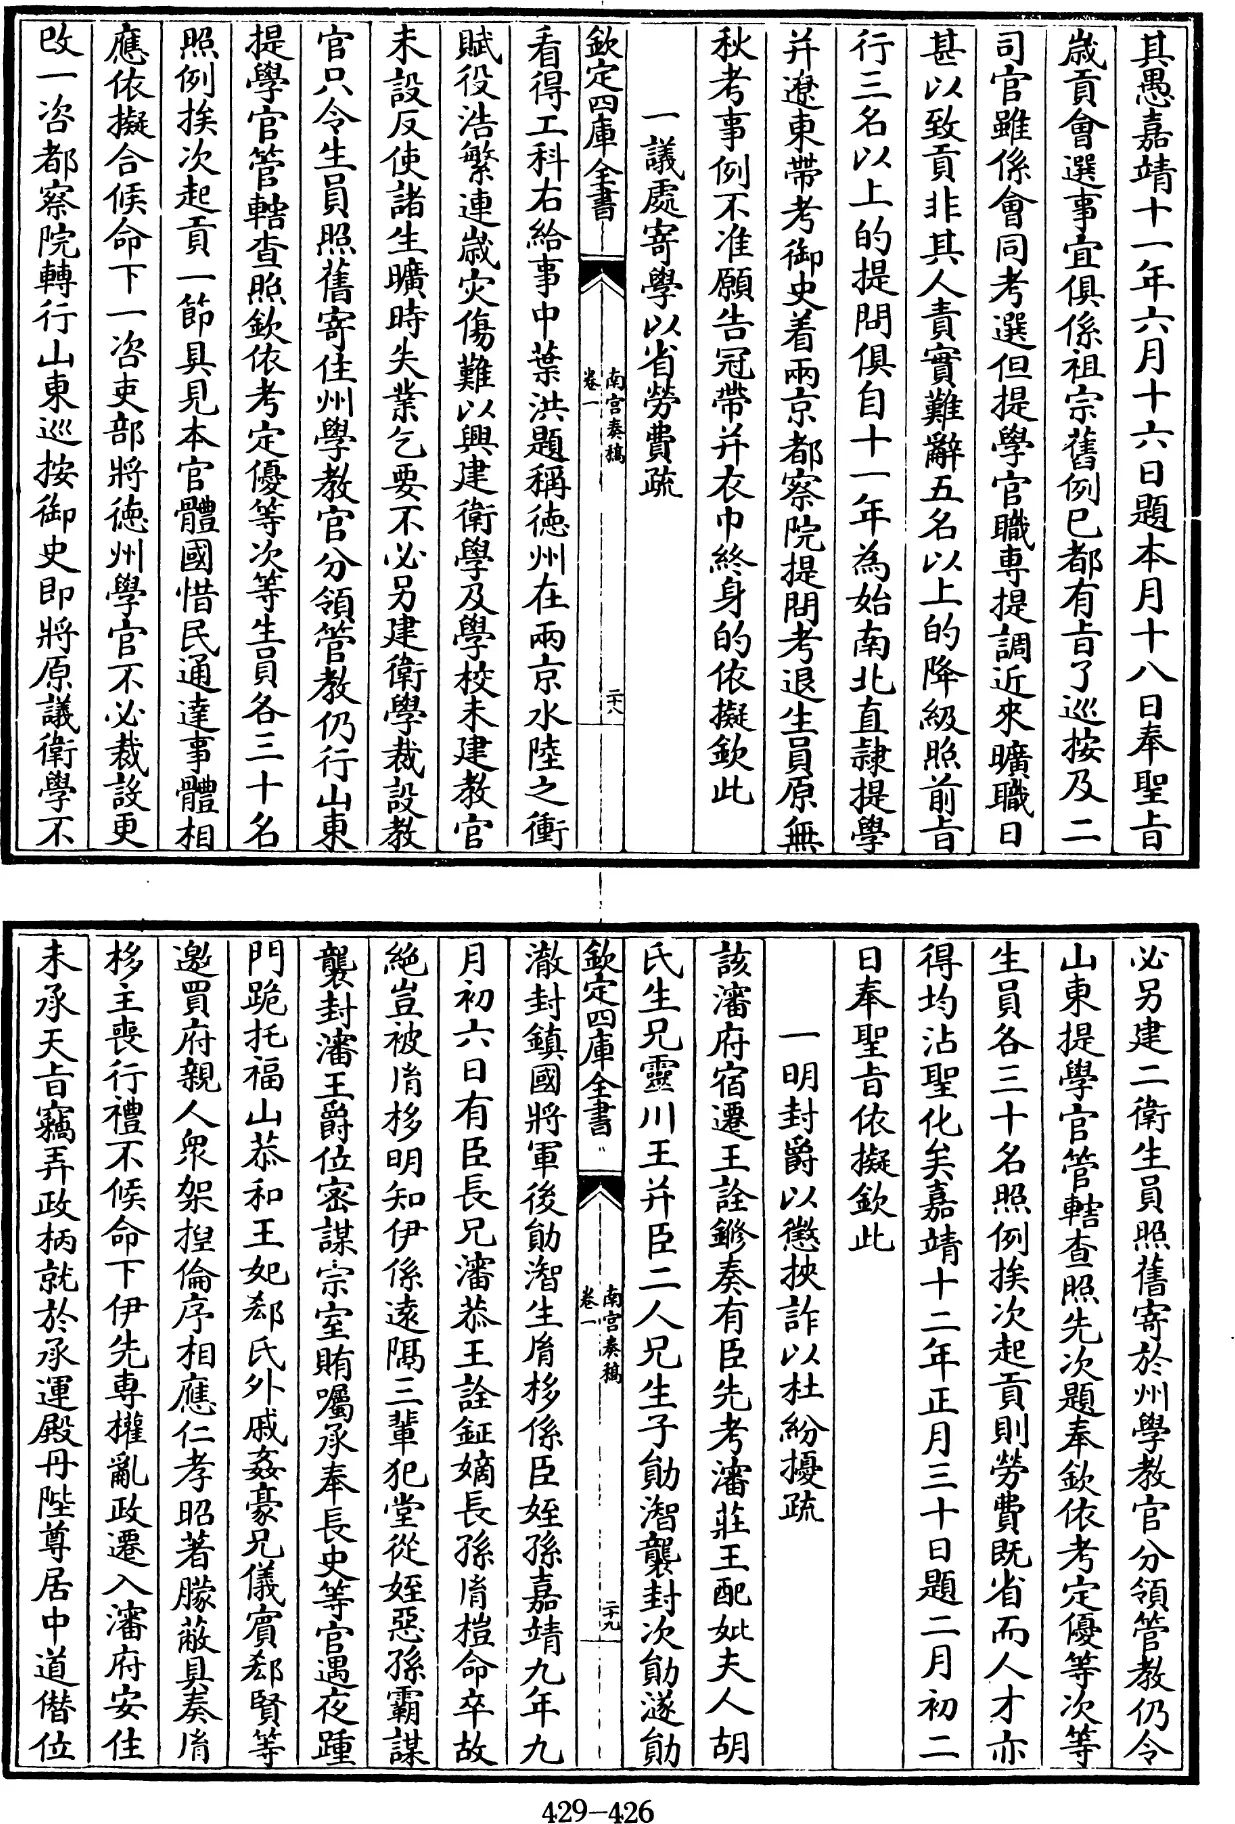 其愚嘉靖十一年六月十六日題本月十八日奉聖㫖
歳貢會選事宜俱係祖宗舊例已都有㫖了巡按及二
司官雖係會同考選但提學官職専提調近來曠職日
甚以致貢非其人責實難辭五名以上的降級照前㫖
行三名以上的提問俱自十一年為始南北直隷提學
并遼東帶考御史着兩京都察院提問考退生員原無
秋考事例不准願告冠帶并衣巾終身的依擬欽此
一議處寄學以省勞費疏
欽定四庫全書
南宫奏稿
卷一
二十八
看得工科右給事中葉洪題稱徳州在兩京水陸之衝
賦役浩繁連歳灾傷難以興建衛學及學校未建教官
未設反使諸生曠時失業乞要不必另建衛學裁設教
官只令生員照舊寄住州學教官分領管教仍行山東
提學官管轄查照欽依考定優等次等生員各三十名
照例挨次起貢一節具見本官體國惜民通達事體相
應依擬合候命下一咨吏部將徳州學官不必裁設更
改一咨都察院轉行山東巡按御史即將原議衛學不
必另建二衛生員照舊寄於州學教官分領管教仍令
山東提學官管轄查照先次題奉欽依考定優等次等
生員各三十名照例挨次起貢則勞費既省而人才亦
得均沾聖化矣嘉靖十二年正月三十日題二月初二
日奉聖㫖依擬欽此
一明封爵以懲挾詐以杜紛擾疏
該瀋府宿遷王詮鉹奏有臣先考瀋莊王配妣夫人胡
氏生兄靈川王并臣二人兄生子勛潪襲封次勛邃勛
欽定四庫全書
南宫奏稿
卷一
二十九
澈封鎮國將軍後勛潪生㣧栘係臣姪孫嘉靖九年九
月初六日有臣長兄瀋恭王詮鉦嫡長孫㣧榿命卒故
絶豈被㣧栘明知伊係逺隔三輩犯堂從姪惡孫霸謀
襲封瀋王爵位密謀宗室賄囑承奉長史等官遇夜踵
門跪托福山恭和王妃郄氏外戚姦豪兄儀賓郄賢等
邀買府親人衆架揑倫序相應仁孝昭著朦蔽具奏㣧
栘主喪行禮不候命下伊先専權亂政遷入瀋府安住
未承天㫖竊弄政柄就於承運殿丹陛尊居中道僭位
429-426